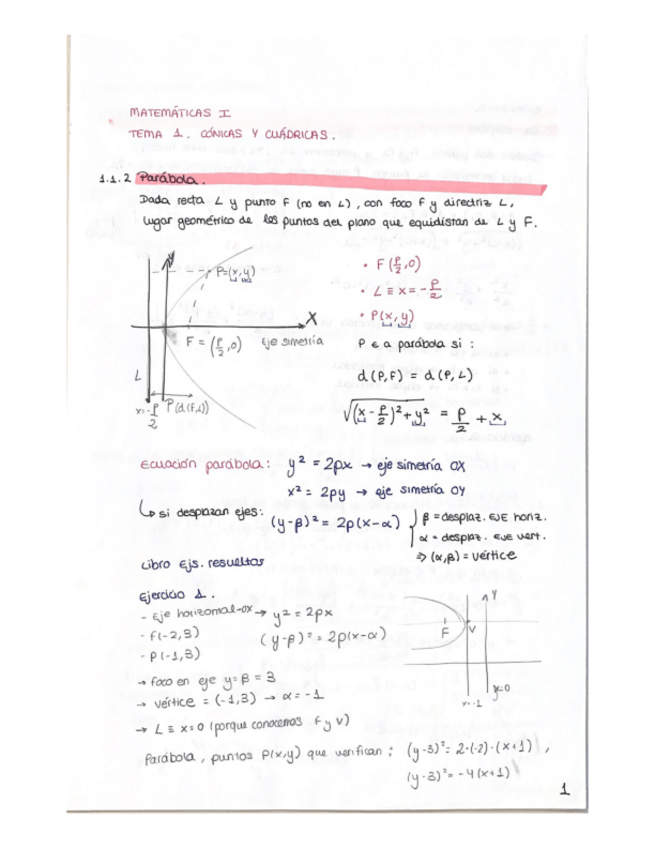 MATEMÁTICAS I
TEMA 1. CÓNICAS Y CUÁDRICAS.
1.1.2 Parábola.
Dada recta L y punto F (no en L), con foco F y directriz L,
lugar geométrico de los puntos del plano que equidistan de L y F.
y
P=(x,y)
X
F = (p/2,0) Eje simetría
L
x=-p/2 P(d(F,L))
• F(p/2,0)
• L ≡ x = -p/2
• P(x,y)
P ∈ a parábola si :
d(P,F) = d(P,L)
√(x - p/2)²+y² = p/2 + x
Ecuación parábola: y² = 2px → eje simetría OX
x² = 2py → eje simetría OY
↳ si desplazan ejes: (y-β)² = 2p(x-α)
β = desplaz. EJE horiz.
α = desplaz. EJE vert.
⇒ (α,β) = vértice
Libro Ejs. resueltos
Ejercicio 1.
- Eje horizontal-OX → y² = 2px
- F(-2,3) (y-β)² = 2p(x-α)
- P(-1,3)
→ foco en eje y=β = 3
→ vértice = (-1,3) → α = -1
→ L ≡ x=0 (porque conocemos F y V)
Y
F V
x=-1
y=0
Parábola, puntos P(x,y) que verifican : (y-3)² = 2·(-2)·(x+1) ,
(y-3)² = -4(x+1)
1